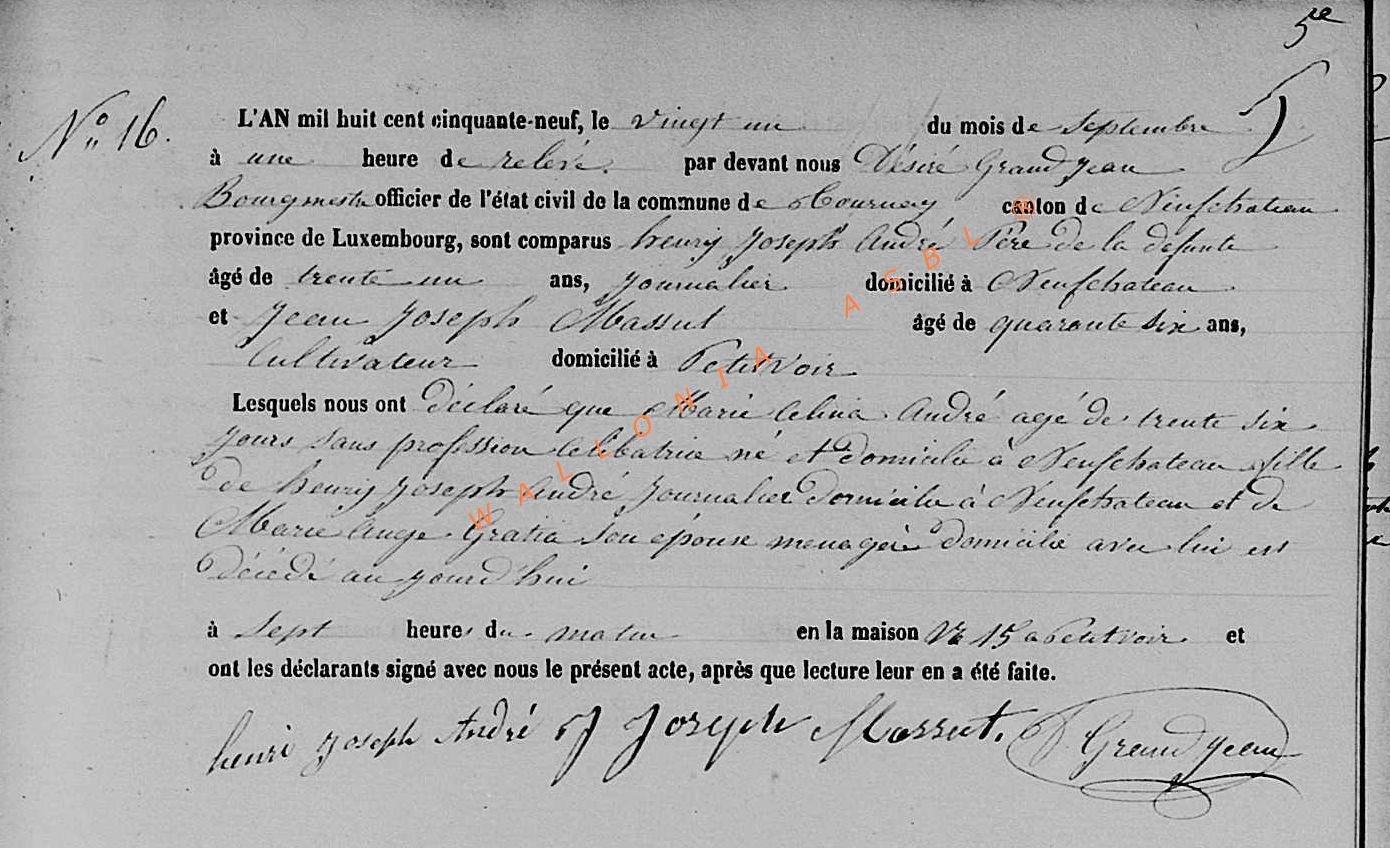 5e
N° 16.
L'AN mil huit cent cinquante-neuf, le vingt un du mois de Septembre
à une heure de relevé. par devant nous Désiré Grandjean
Bourgmestre officier de l'état civil de la commune de Tournay canton de Neufchateau
province de Luxembourg, sont comparus henry Joseph André Père de la defunte
âgé de trente un ans, Journalier domicilié à Neufchateau
et Jean Joseph Massut âgé de quarante six ans,
Cultivateur domicilié à Petitvoir
Lesquels nous ont déclaré que Marie Celina André agé de trente six
jours sans profession celibatrice né et domicilié à Neufchateau fille
de henry Joseph André Journalier domicilié à Neufchateau et de
Marie Ange Gratia son épouse menagère domicilié avec lui est
décédé au jourd'hui
à Sept heures du matin en la maison N° 15 a Petitvoir et
ont les déclarants signé avec nous le présent acte, après que lecture leur en a été faite.
henri Joseph André J Joseph Massut. D Grandjean
WALLONIA ASBL ©